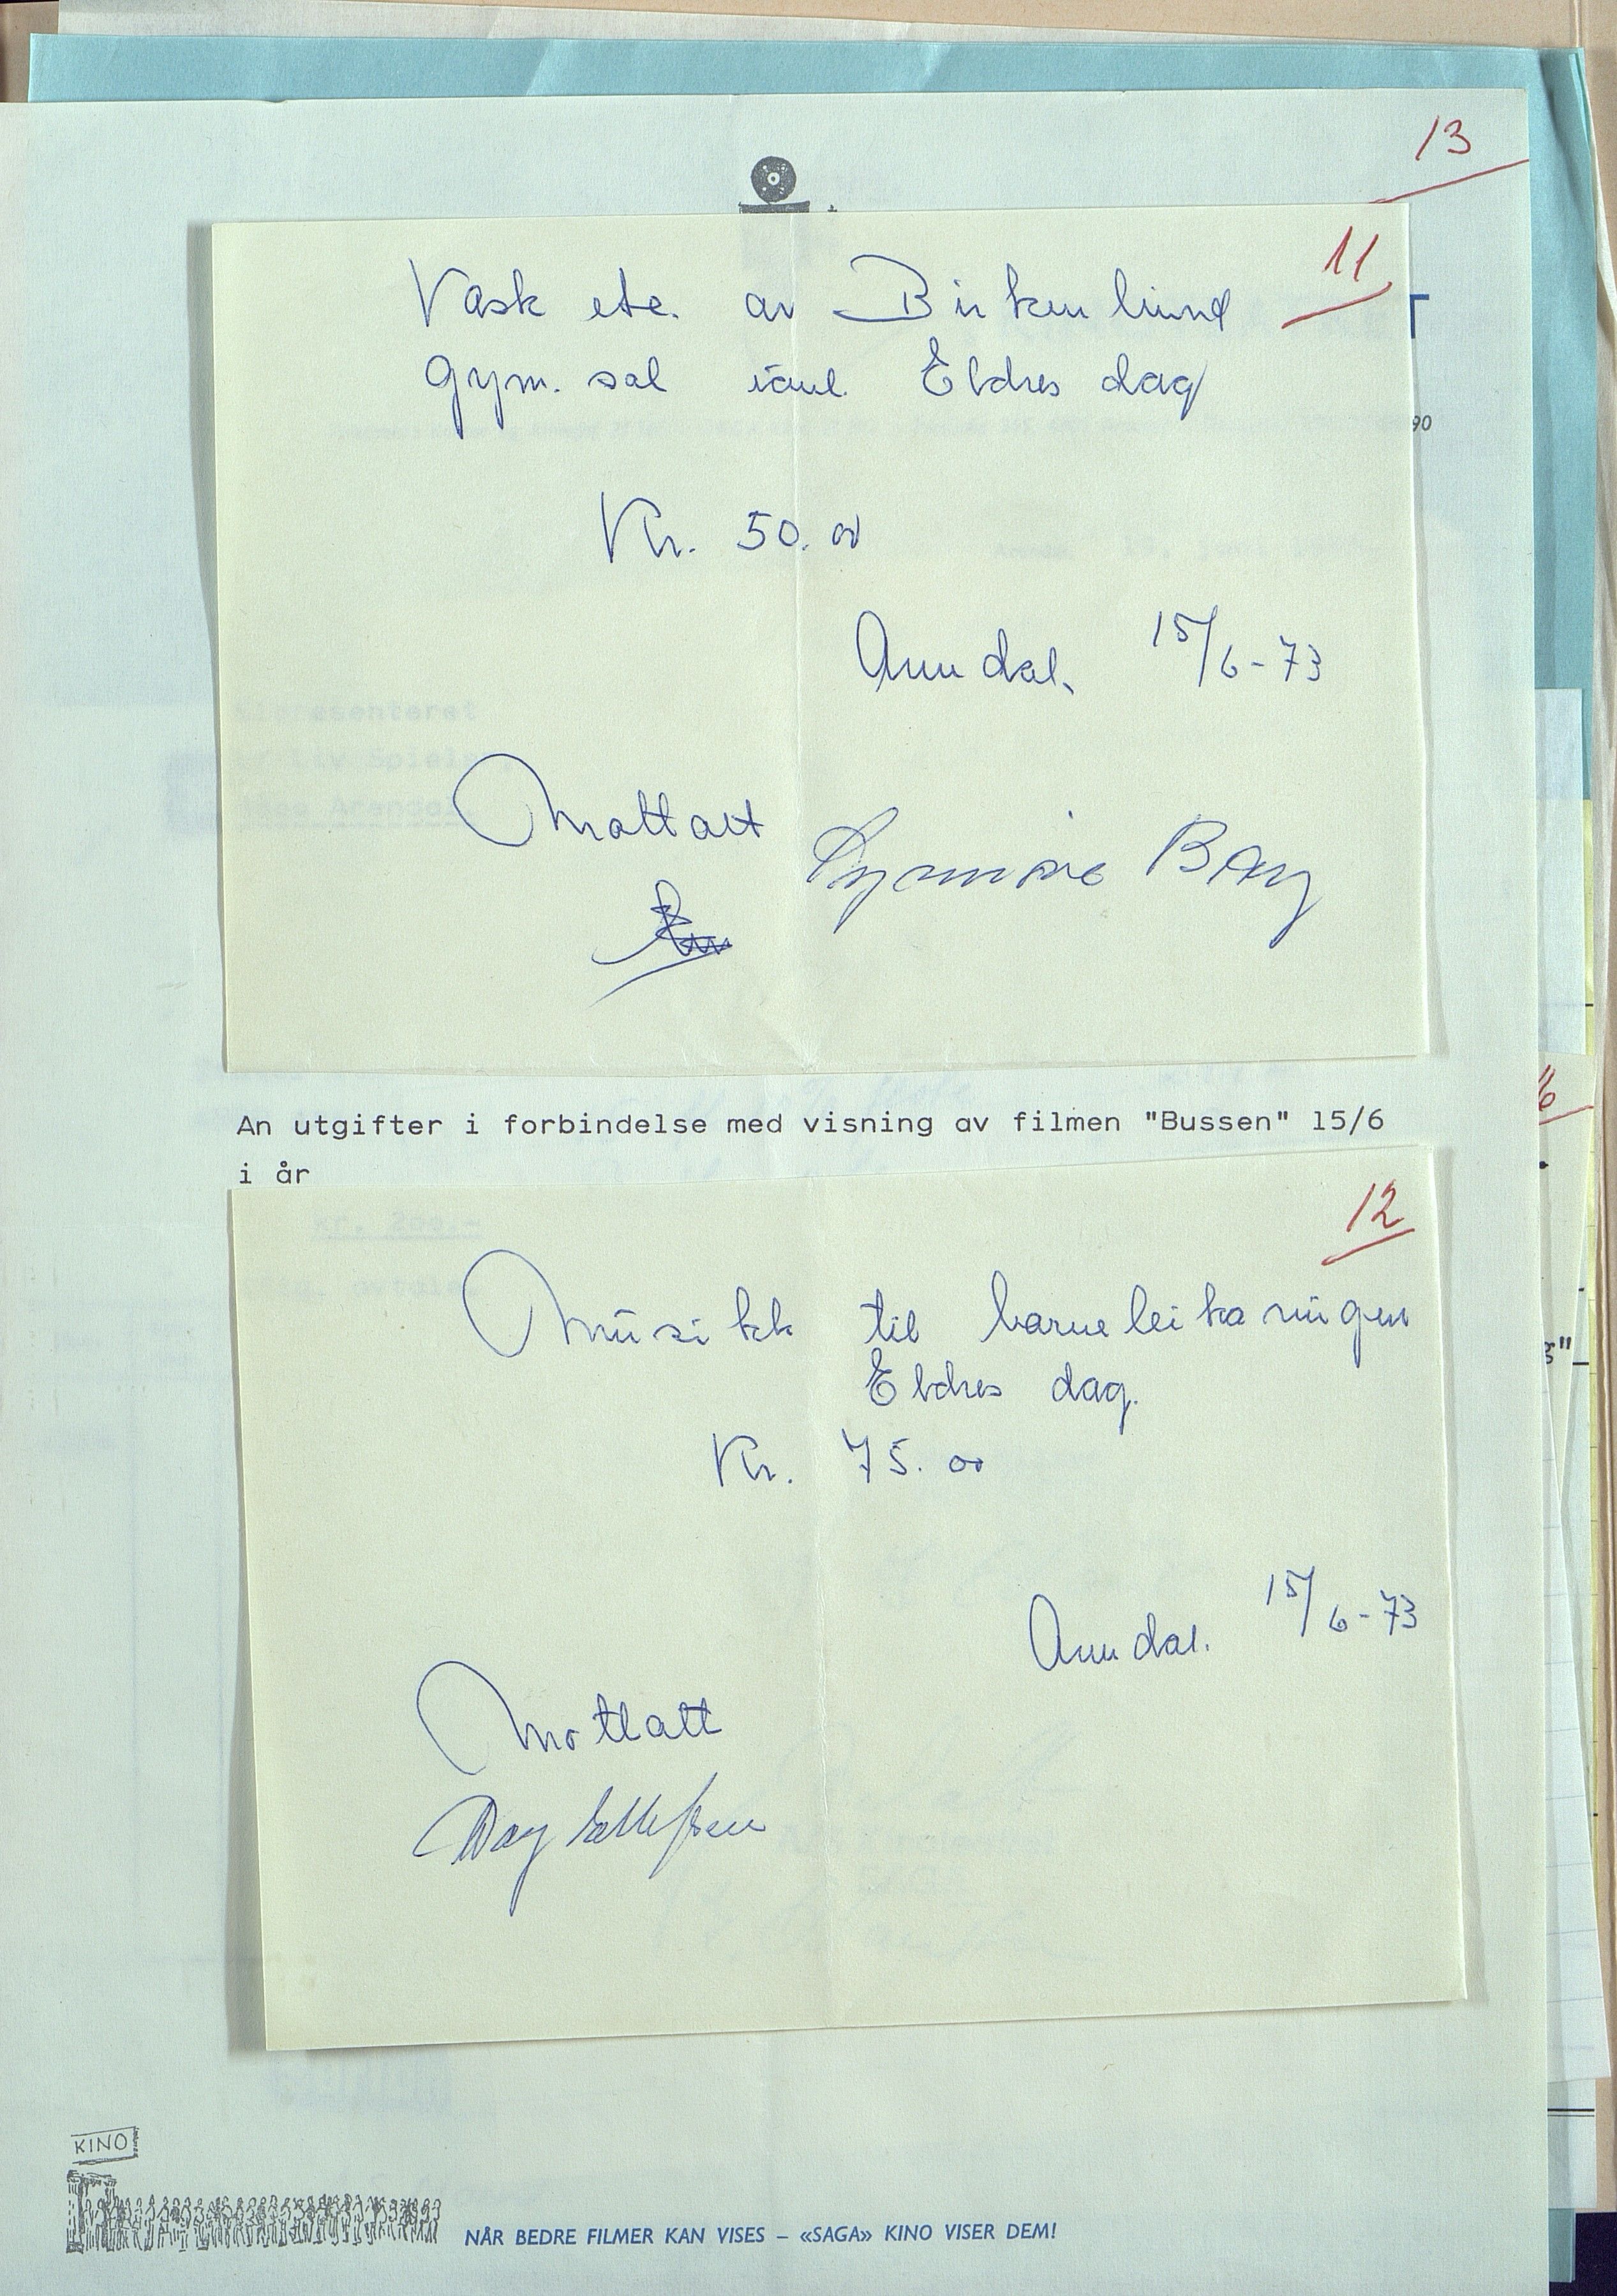 13
11
Vask etc. av Birkenlund
T
gym. sal saml. Eldres dag
90
Kr. 50.00
Arendal. 15/6-73
Mottatt
Bay
An utgifter i forbindelse med visning av filmen "Bussen" 15/6
i år
12
Musikk til barneleikaringen
Eldres dag.
Kr. 75.00
Arendal. 15/6-73
Mottatt
Dag Ellefsen
KINO
NÅR BEDRE FILMER KAN VISES – «SAGA» KINO VISER DEM!